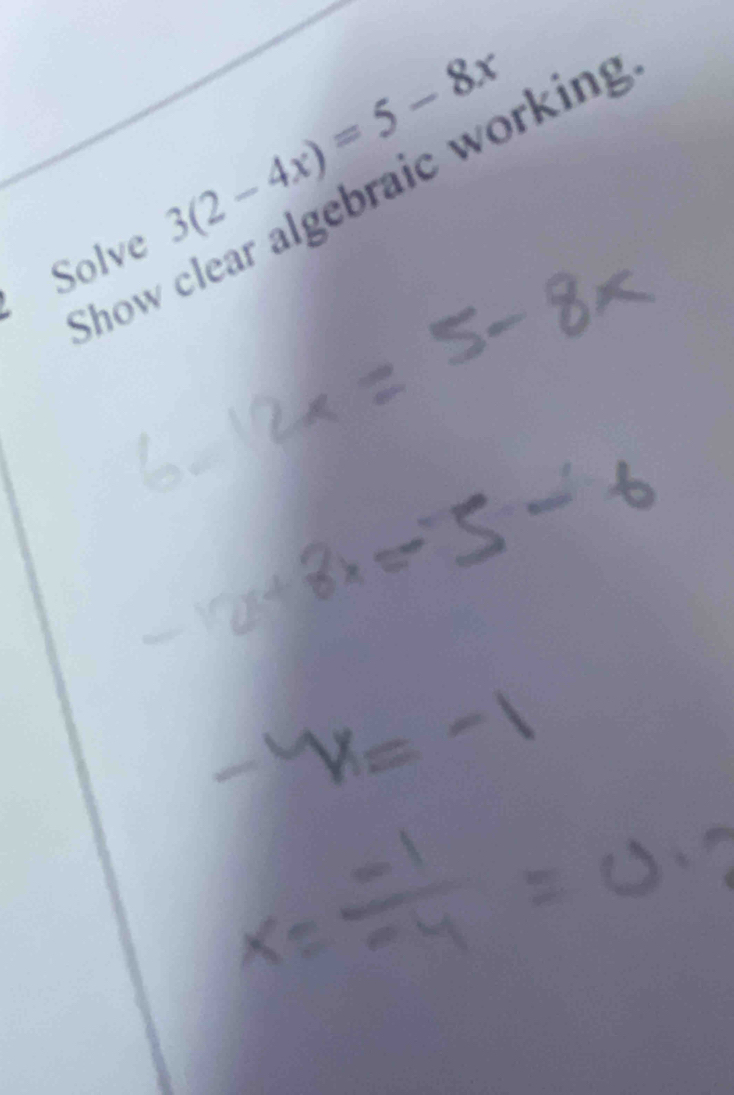 Solve 3(2 – 4x) = 5 – 8x
Show clear algebraic working.
6 - 12x = 5 - 8x
- 12x + 8x = 5 - 6
- 4x = - 1
x = -1/-4 = 0.2